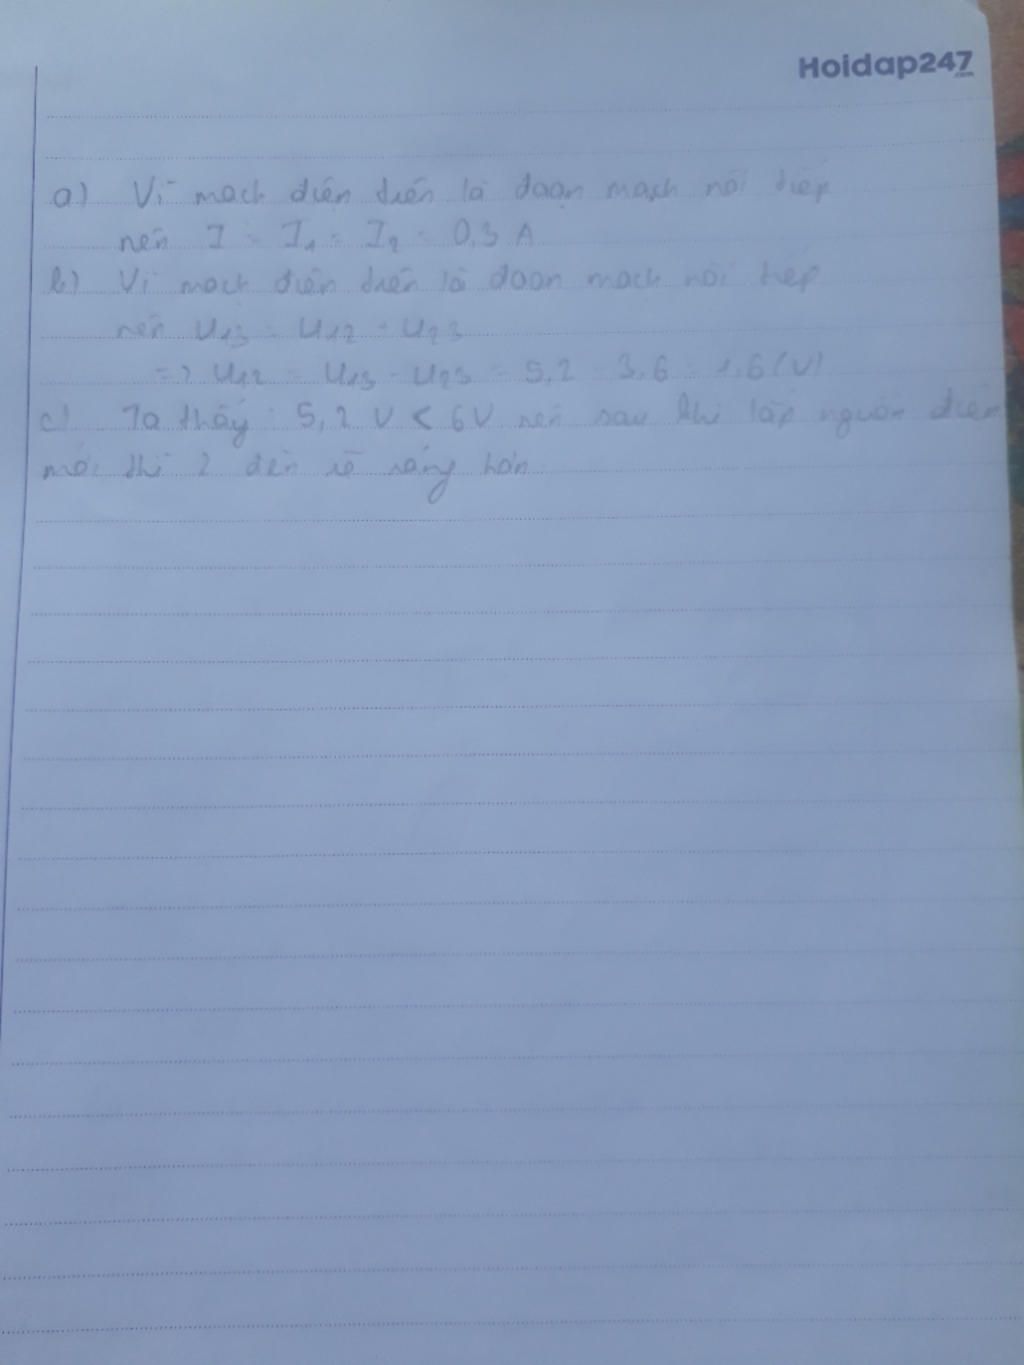 Hoidap247
.com
a) Vì mạch điện trên là đoạn mạch nối tiếp
nên I = I₁ = I₂ = 0,3 A
b) Vì mạch điện trên là đoạn mạch nối tiếp
nên U₁₃ = U₁₂ + U₂₃
=> U₁₂ = U₁₃ - U₂₃ = 5,2 - 3,6 = 1,6 (V)
c) Ta thấy: 5,2 V < 6V nên sau khi lắp nguồn điện
mới thì 2 đèn sẽ sáng hơn